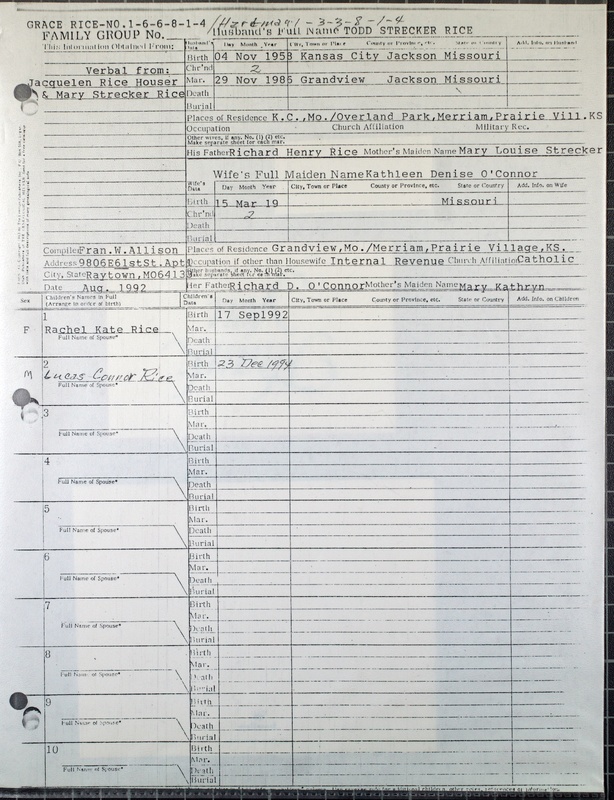 GRACE RICE-NO.1-6-6-8-1-4 /Hardman 1-3-3-8-1-4
FAMILY GROUP No. Husband's Full Name TODD STRECKER RICE
This Information Obtained From:
Husband's Data Day Month Year City, Town or Place County or Province, etc. State or Country Add. Info. on Husband
Birth 04 Nov 1958 Kansas City Jackson Missouri
Verbal from: Chr'nd 2
Jacquelen Rice Houser Mar. 29 Nov 1986 Grandview Jackson Missouri
& Mary Strecker Rice Death
Burial
Places of Residence K.C.,Mo./Overland Park,Merriam,Prairie Vill.KS
Occupation Church Affiliation Military Rec.
Other wives, if any. No. (1) (2) etc.
Make separate sheet for each mar.
His Father Richard Henry Rice Mother's Maiden Name Mary Louise Strecker
Wife's Full Maiden Name Kathleen Denise O'Connor
Wife's Data Day Month Year City, Town or Place County or Province, etc. State or Country Add. Info. on Wife
Birth 15 Mar 19 Missouri
Chr'nd 2
Death
Burial
Compiler Fran.W.Allison Places of Residence Grandview,Mo./Merriam,Prairie Village,KS.
Address 9806E61stSt.Apt Occupation if other than Housewife Internal Revenue Church Affiliation Catholic
City, State Raytown,MO6413 Other husbands, if any. No. (1) (2) etc. Make separate sheet for each mar.
Date Aug. 1992 Her Father Richard D. O'Connor Mother's Maiden Name Mary Kathryn
Sex Children's Names in Full (Arrange in order of birth) Children's Data Day Month Year City, Town or Place County or Province, etc. State or Country Add. Info. on Children
1 Birth 17 Sep1992
F Rachel Kate Rice Mar.
Full Name of Spouse* Death
Burial
2 Birth 23 Dec 1994
M Lucas Connor Rice Mar.
Full Name of Spouse* Death
Burial
3 Birth
Mar.
Full Name of Spouse* Death
Burial
4 Birth
Mar.
Full Name of Spouse* Death
Burial
5 Birth
Mar.
Full Name of Spouse* Death
Burial
6 Birth
Mar.
Full Name of Spouse* Death
Burial
7 Birth
Mar.
Full Name of Spouse* Death
Burial
8 Birth
Mar.
Full Name of Spouse* Death
Burial
9 Birth
Mar.
Full Name of Spouse* Death
Burial
10 Birth
Mar.
Full Name of Spouse* Death
Burial